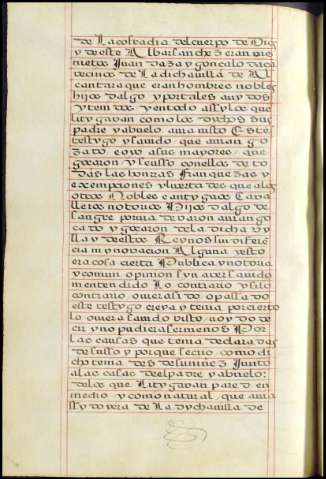 de La cofradia del cuerpo de Dios
y de este Albarsanchez eran vis
nietos Juan daza y gonçalo daça
vecinos de La dicha uilla de Al
cantara que eran hombres nobles
hijos dalgo y portales auydos
y tenidos y en todo assy los que
lityg̃auan como los dychos sus
padre y abuelo ama visto Este
testygo y sauido que auian g
zado como a sus mayores que
goçaron y se usso con ellos de to
das las honrras franqueças y
exempciones y liuertades que a los
otros Nobles e antyguos caua
lleros notorios Hijos dalgo de
sangre por via de varon auian go
cado y goçaron en la dicha vy
lla y de estos Reynos sin diferē
cia ni ynobacion Alguna y esto
era cosa cierta Publica y notoria
y comun opinion syn auer sauido
ni entendido Lo contrario y si lo
contrario ouiera sido o passado
este testygo creya y tenia por cierto
lo ouiera sauido visto o oydo de
cir y no pudiera ser menos Por
las causas que tenia declaradas
de susso y porque se crio como di
cho tenia desde su niñez Junto
a las casas del padre y abuelo
de los que Lityg̃auan pared en
medio y como natural que auia
ssydo y era de La dycha uilla de